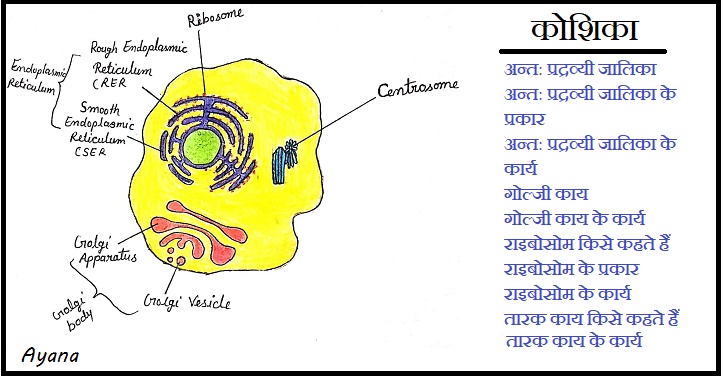 Ribosome
Rough Endoplasmic
Reticulum
CRER
Endoplasmic
Reticulum
Smooth
Endoplasmic
Reticulum
CSER
Centrosome
Golgi
Apparatus
Golgi Vesicle
Golgi
body
Ayana
कोशिका
अन्तः प्रद्रव्यी जालिका
अन्तः प्रद्रव्यी जालिका के
प्रकार
अन्तः प्रद्रव्यी जालिका के
कार्य
गोल्जी काय
गोल्जी काय के कार्य
राइबोसोम किसे कहते हैं
राइबोसोम के प्रकार
राइबोसोम के कार्य
तारक काय किसे कहते हैं
तारक काय के कार्य